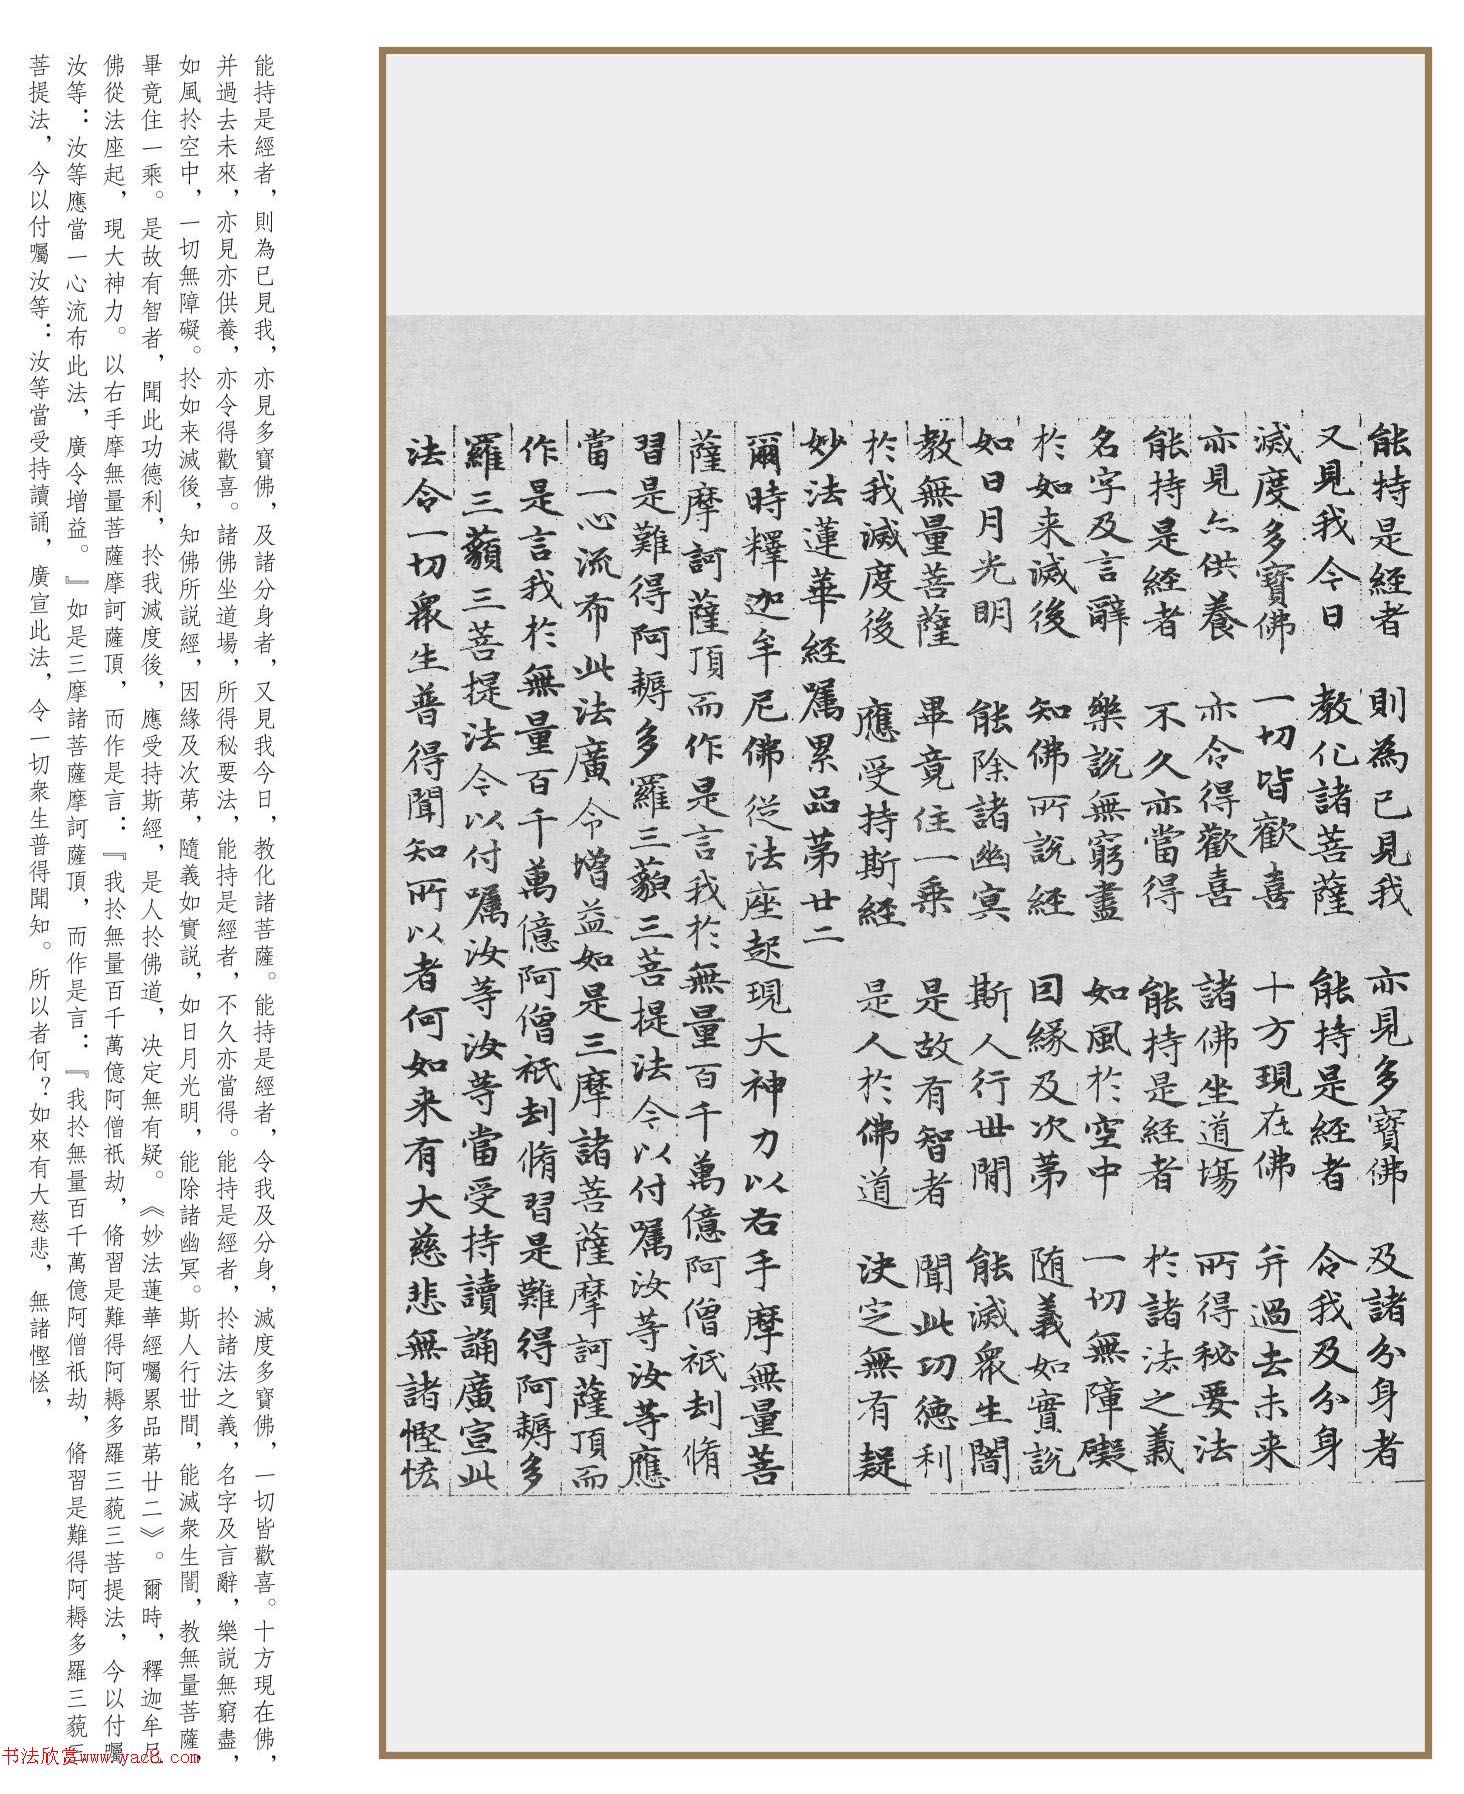 能持是経者　則為已見我　亦見多寶佛　及諸分身者
又見我今日　教化諸菩薩　能持是経者　令我及分身
滅度多寶佛　一切皆歡喜　十方現在佛　并過去未来
亦見亦供養　亦令得歡喜　諸佛坐道場　所得秘要法
能持是経者　不久亦當得　能持是経者　於諸法之義
名字及言辭　樂說無窮盡　如風於空中　一切無障礙
於如来滅後　知佛所說経　因緣及次第　随義如實說
如日月光明　能除諸幽冥　斯人行世間　能滅衆生闇
教無量菩薩　畢竟住一乗　是故有智者　聞此功德利
於我滅度後　應受持斯経　是人於佛道　決定無有疑
妙法蓮華経囑累品第廿二
爾時釋迦牟尼佛從法座起現大神力以右手摩無量菩
薩摩訶薩頂而作是言我於無量百千萬億阿僧祇劫脩
習是難得阿耨多羅三藐三菩提法今以付囑汝等汝等應
當一心流布此法廣令增益如是三摩諸菩薩摩訶薩頂而
作是言我於無量百千萬億阿僧祇劫脩習是難得阿耨多
羅三藐三菩提法今以付囑汝等汝等當受持讀誦廣宣此
法令一切衆生普得聞知所以者何如来有大慈悲無諸慳悋
能持是經者，則為已見我，亦見多寶佛，及諸分身者，又見我今日，教化諸菩薩。能持是經者，令我及分身，滅度多寶佛，一切皆歡喜。十方現在佛，
并過去未來，亦見亦供養，亦令得歡喜。諸佛坐道場，所得秘要法，能持是經者，不久亦當得。能持是經者，於諸法之義，名字及言辭，樂説無窮盡，
如風於空中，一切無障礙。於如来滅後，知佛所説經，因緣及次第，隨義如實説，如日月光明，能除諸幽冥。斯人行世間，能滅衆生闇，教無量菩薩，
畢竟住一乘。是故有智者，聞此功德利，於我滅度後，應受持斯經，是人於佛道，決定無有疑。《妙法蓮華經囑累品第廿二》。爾時，釋迦牟尼
佛從法座起，現大神力。以右手摩無量菩薩摩訶薩頂，而作是言：『我於無量百千萬億阿僧祇劫，脩習是難得阿耨多羅三藐三菩提法，今以付囑
汝等：汝等應當一心流布此法，廣令增益。』如是三摩諸菩薩摩訶薩頂，而作是言：『我於無量百千萬億阿僧祇劫，脩習是難得阿耨多羅三藐三
菩提法，今以付囑汝等：汝等當受持讀誦，廣宣此法，令一切衆生普得聞知。所以者何？如來有大慈悲，無諸慳悋，
书法欣赏www.yac8.com